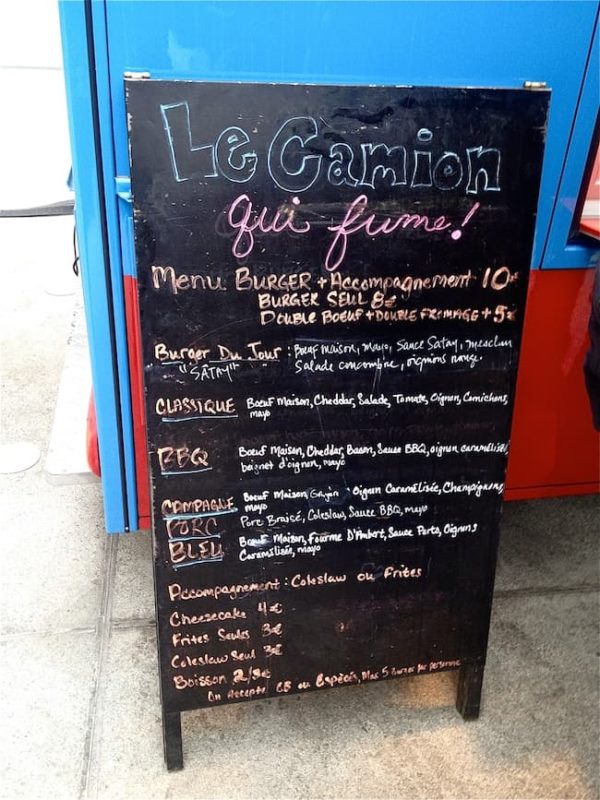 Le Camion
qui fume!
Menu BURGER + Accompagnement 10€
BURGER SEUL 8€
DOUBLE BOEUF + DOUBLE FROMAGE + 5€
Burger Du Jour : Boeuf maison, mayo, Sauce Satay, mesclun
"SATAY" Salade concombre, oignons rouge.
CLASSIQUE Boeuf Maison, Cheddar, Salade, Tomate, Oignon, Cornichons,
mayo
BBQ Boeuf Maison, Cheddar, Bacon, Sauce BBQ, oignon caramélisé
beignet d'oignon, mayo
CAMPAGNE Boeuf Maison, Oignon Caramélisée, Champignons,
mayo
PORC Porc Braisé, Coleslaw, Sauce BBQ, mayo
BLEU Boeuf Maison, Fourme D'Ambert, Sauce Porto, Oignons
Caramélisée, mayo
Accompagnement : Coleslaw ou Frites
Cheesecake 4€
Frites Seules 3€
Coleslaw Seul 3€
Boisson 2/3€
On Accepte CB ou Espèces, Max 5 Burger par personne